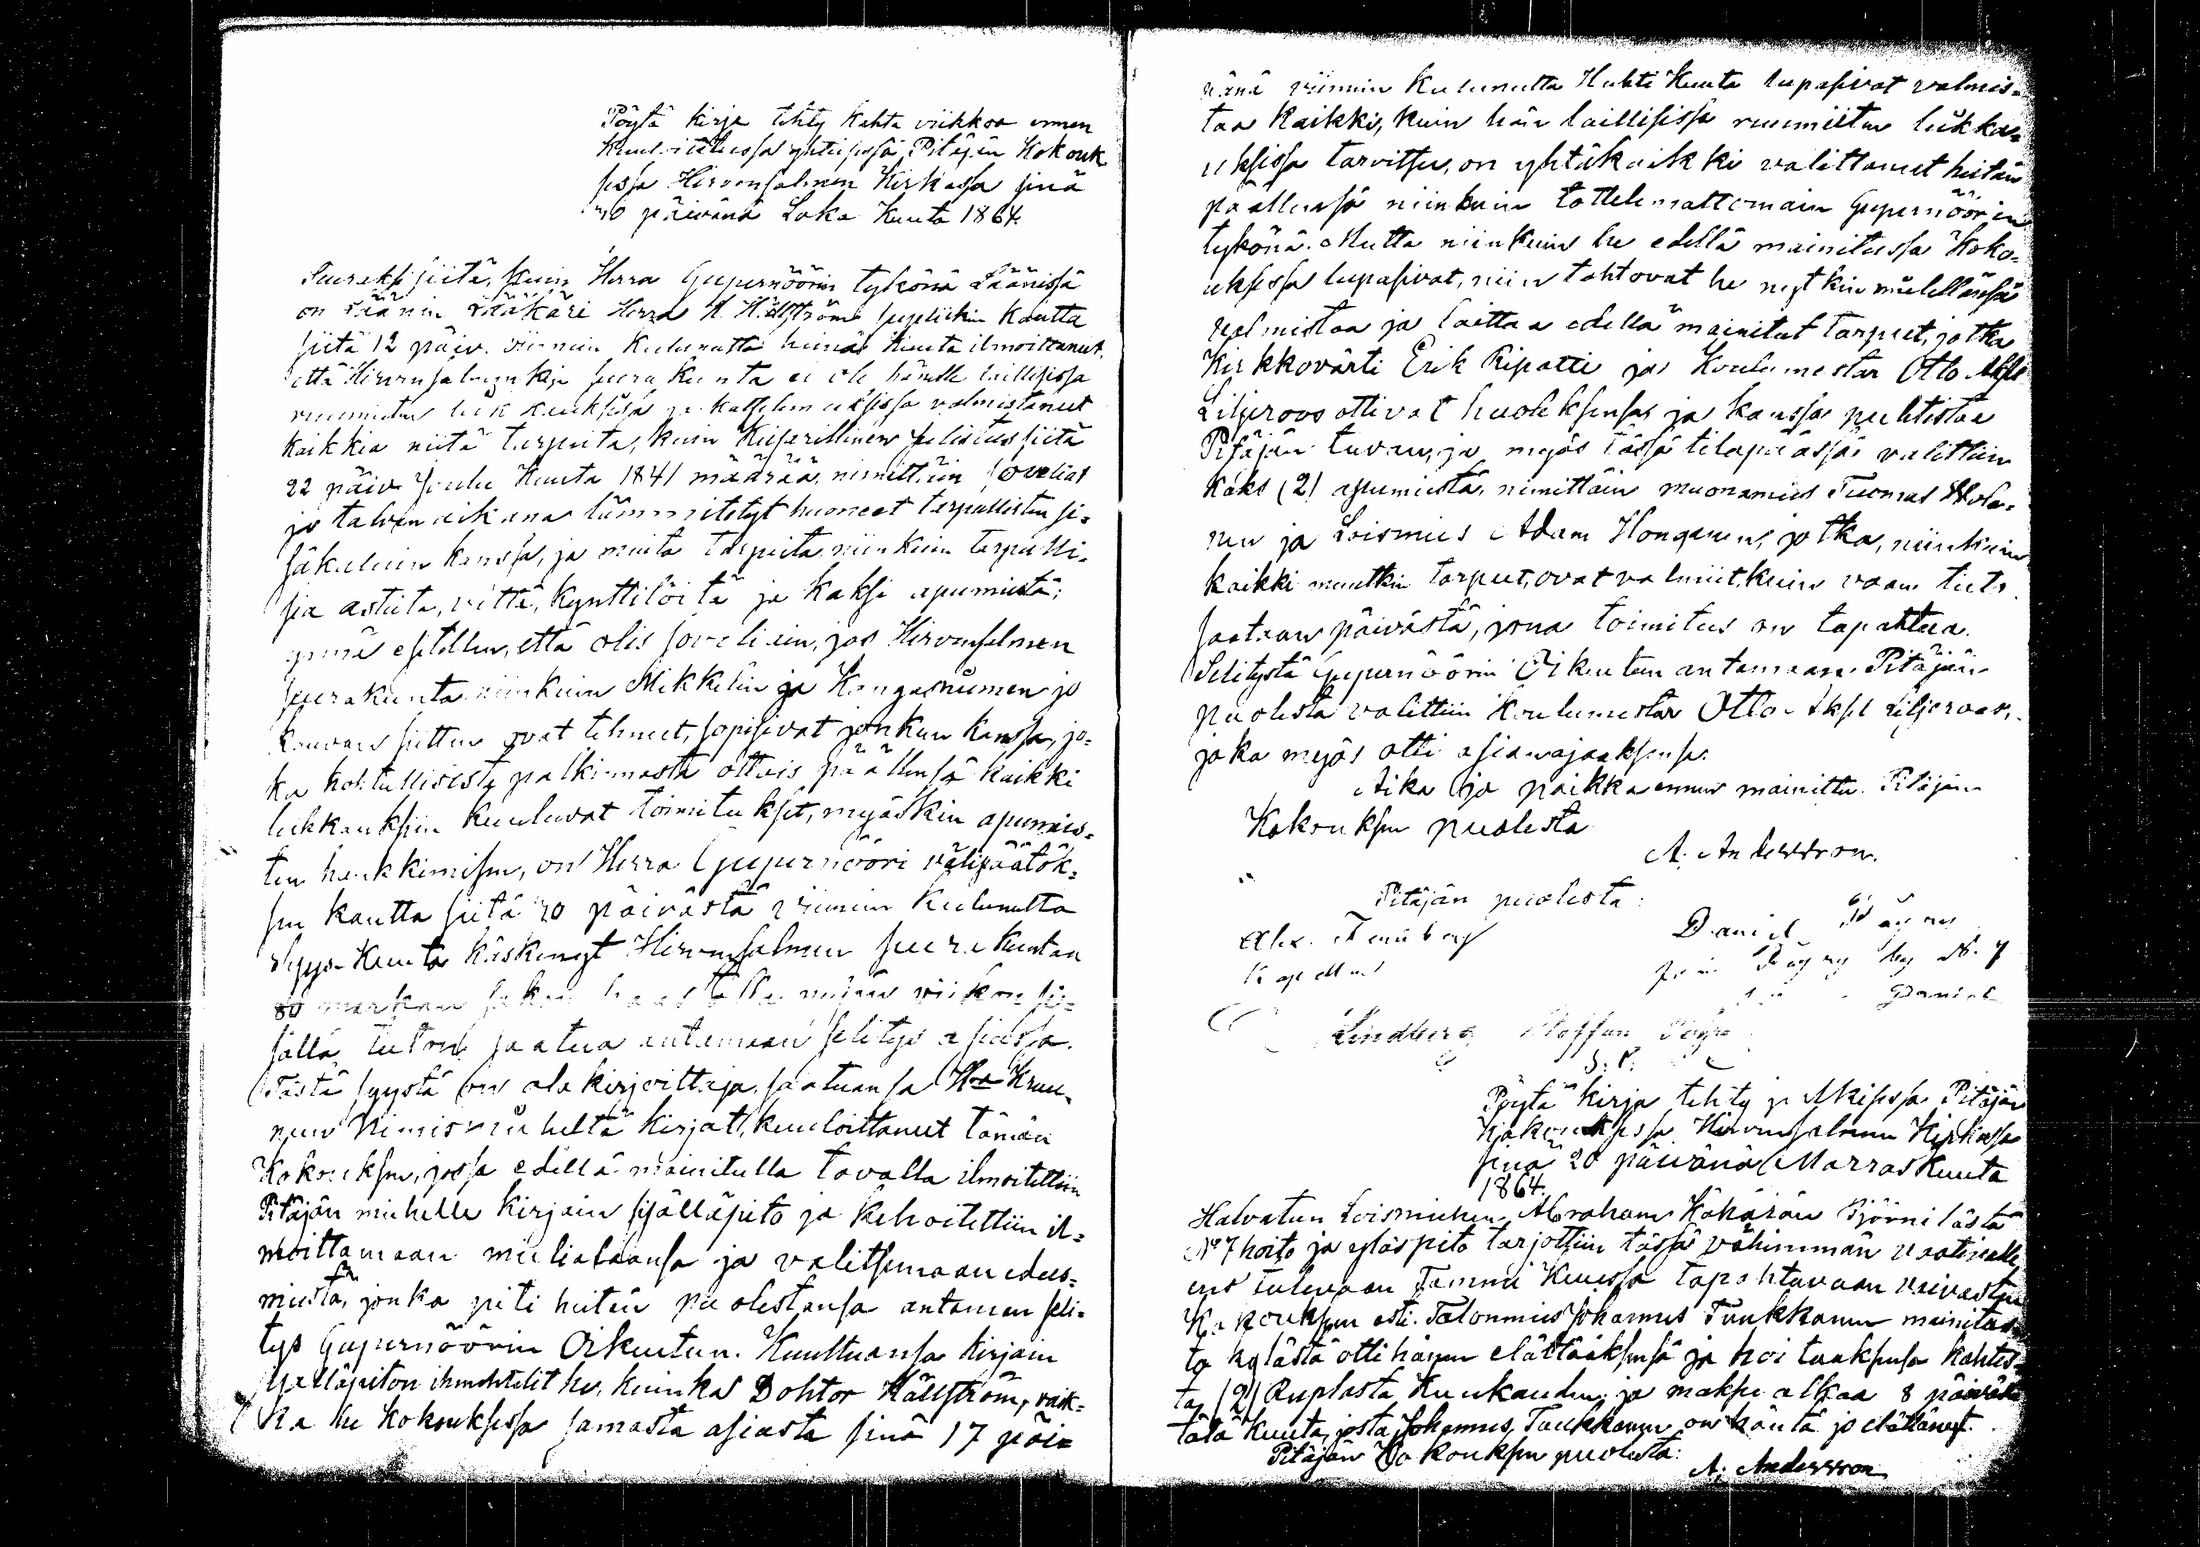 Pöytä kirja tehty kahta viikkoa ennen
kuulutetussa yhteisessä Pitäjän Kokouk
sessa Hirvensalmen Kirkossa sinä
30 päivänä Loka Kuuta 1864.
Seuraksi siitä, kuin Herra Gupernöörin tykönä Läänissä
on Läänin Lääkäri Herra H. Hällström supliikin kautta
siitä 12 päiv. viimein kulunutta heinä Kuuta ilmoittanut,
että Hirvensalmen seurakunta ei ole hänelle laillisissa
ruumiitten leikkauksissa ja katselemuksissa valmistanut
kaikkia niitä tarpeita, kuin Keisarillinen selistus siitä
22 päiv Joulu Kuuta 1841 määrää, nimittäin soveliat
ja talven aikana lämmitetyt huoneet tarpeellisten si-
säkaluin kanssa, ja muita tarpeita niinkuin tarpeelli-
sia astioita, vettä, kynttilöitä ja kaksi apumiestä;
ynnä esitellen, että olis soveliain, jos Hirvensalmen
seurakunta niinkuin Mikkelin ja Kangasniemen jo
kauvan sitten ovat tehneet, sopisivat jonkun kanssa, jo-
ka kohtullisesta palkinnosta ottais päällensä kaikki
leikkauksiin kuuluvat toimitukset, myöskin apumies-
ten hankkimisen, on Herra Gupernööri välipäätök-
sen kautta siitä 20 päivästä viimein kulunutta
Syys Kuuta käskenyt Hirvensalmen seurakuntaa
80 markan sakon haastolla neljän viikon si-
sällä tiedon saatua antamaan selitys asiassa.
Tästä syystä on ala kirjoittaja, saatuansa Kruu-
nun Nimismieheltä kirjat, kuuloittanut tämän
Kokouksen, jossa edellä mainitulla tavalla ilmoitettiin
Pitäjän miehelle kirjain sisälläpito ja kehoitettiin il-
moittamaan mielialaansa ja valitsemaan edus-
miestä, jonka piti heitän puolestansa antaman seli-
tys Gupernöörin Oikeuteen. Kuultuansa kirjain
sisälläpiton ihmehtelit he, kuinka Dohtor Hällström, vaik-
ka he kokouksessa samasta asiasta sinä 17 päi-
vänä viimein kulunutta Huhti Kuuta lupasivat valmis-
taa kaikki, kuin hän laillisissa ruumiitten leikka-
uksissa tarvitsee, on yhtäkaikki valittanut heitän
päällensä niinkuin tottelemattomain Gupernöörin
tykönä. Mutta niinkuin he edellä mainitussa Koko-
uksessa lupasivat, niin tahtovat he nytkin mielellänsä
valmistaa ja laittaa edellä mainitut tarpeet, jotka
Kirkkovärti Erik Ripatti ja Koulumestar Otto Aksel
Liljeroos ottivat huoleksensa ja kanssa puhtistaa
Pitäjän tuvan, ja myös tässä tilapäässä valittiin
kaks (2) apumiestä, nimittäin muonamies Tuomas
nen ja Loismies Adam Hongonen, jotka, niinkuin
kaikki muutkin tarpeet, ovat valmiit, kuin vaan tieto
saataan päivästä, jona toimitus on tapahtuva.
Selitystä Gupernöörin Oikeuteen antamaan Pitäjän
puolesta valittiin Koulumestar Otto Aksel Liljeroos,
joka myös otti asian ajaaksensa.
Aika ja paikka ennen mainittu. Pitäjän
Kokouksen puolesta
A. Andersson.
Pitäjän puolesta:
Alex.
Kapellan
Daniel
No. 7
Daniel
Lindberg Staffan
Pöytä kirja tehty ylimääräisessä Pitäjän
Kokouksessa Hirvensalmen Kirkossa
sinä 20 päivänä Marraskuuta
1864.
Halvatun Loismiehen Abraham Hökösön Björnilästä
No 7 hoito ja ylöspito tarjottiin tässä vähimmän vaativalle
ens tulevaan Tammi Kuussa tapahtuvaan vaivasten
Kokouksen asti. Talonmies Johannes Tuukkanen mainitus-
ta kylästä otti hänen elättääksensä ja hoitaaksensa kahdes-
ta (2) Ruplasta Kuukaudelta, ja maksu alkaa 8 päivästä
tätä kuuta, josta Johannes Tuukkanen on häntä jo elättänyt.
Pitäjän Kokouksen puolesta:
A. Andersson